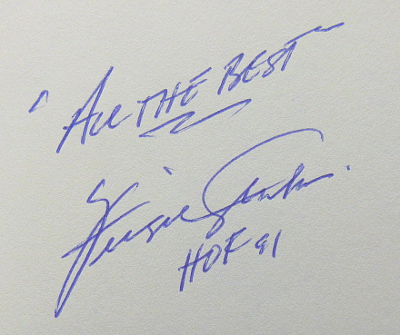 "All THE BEST"
Fergie Jenkins
HOF 91